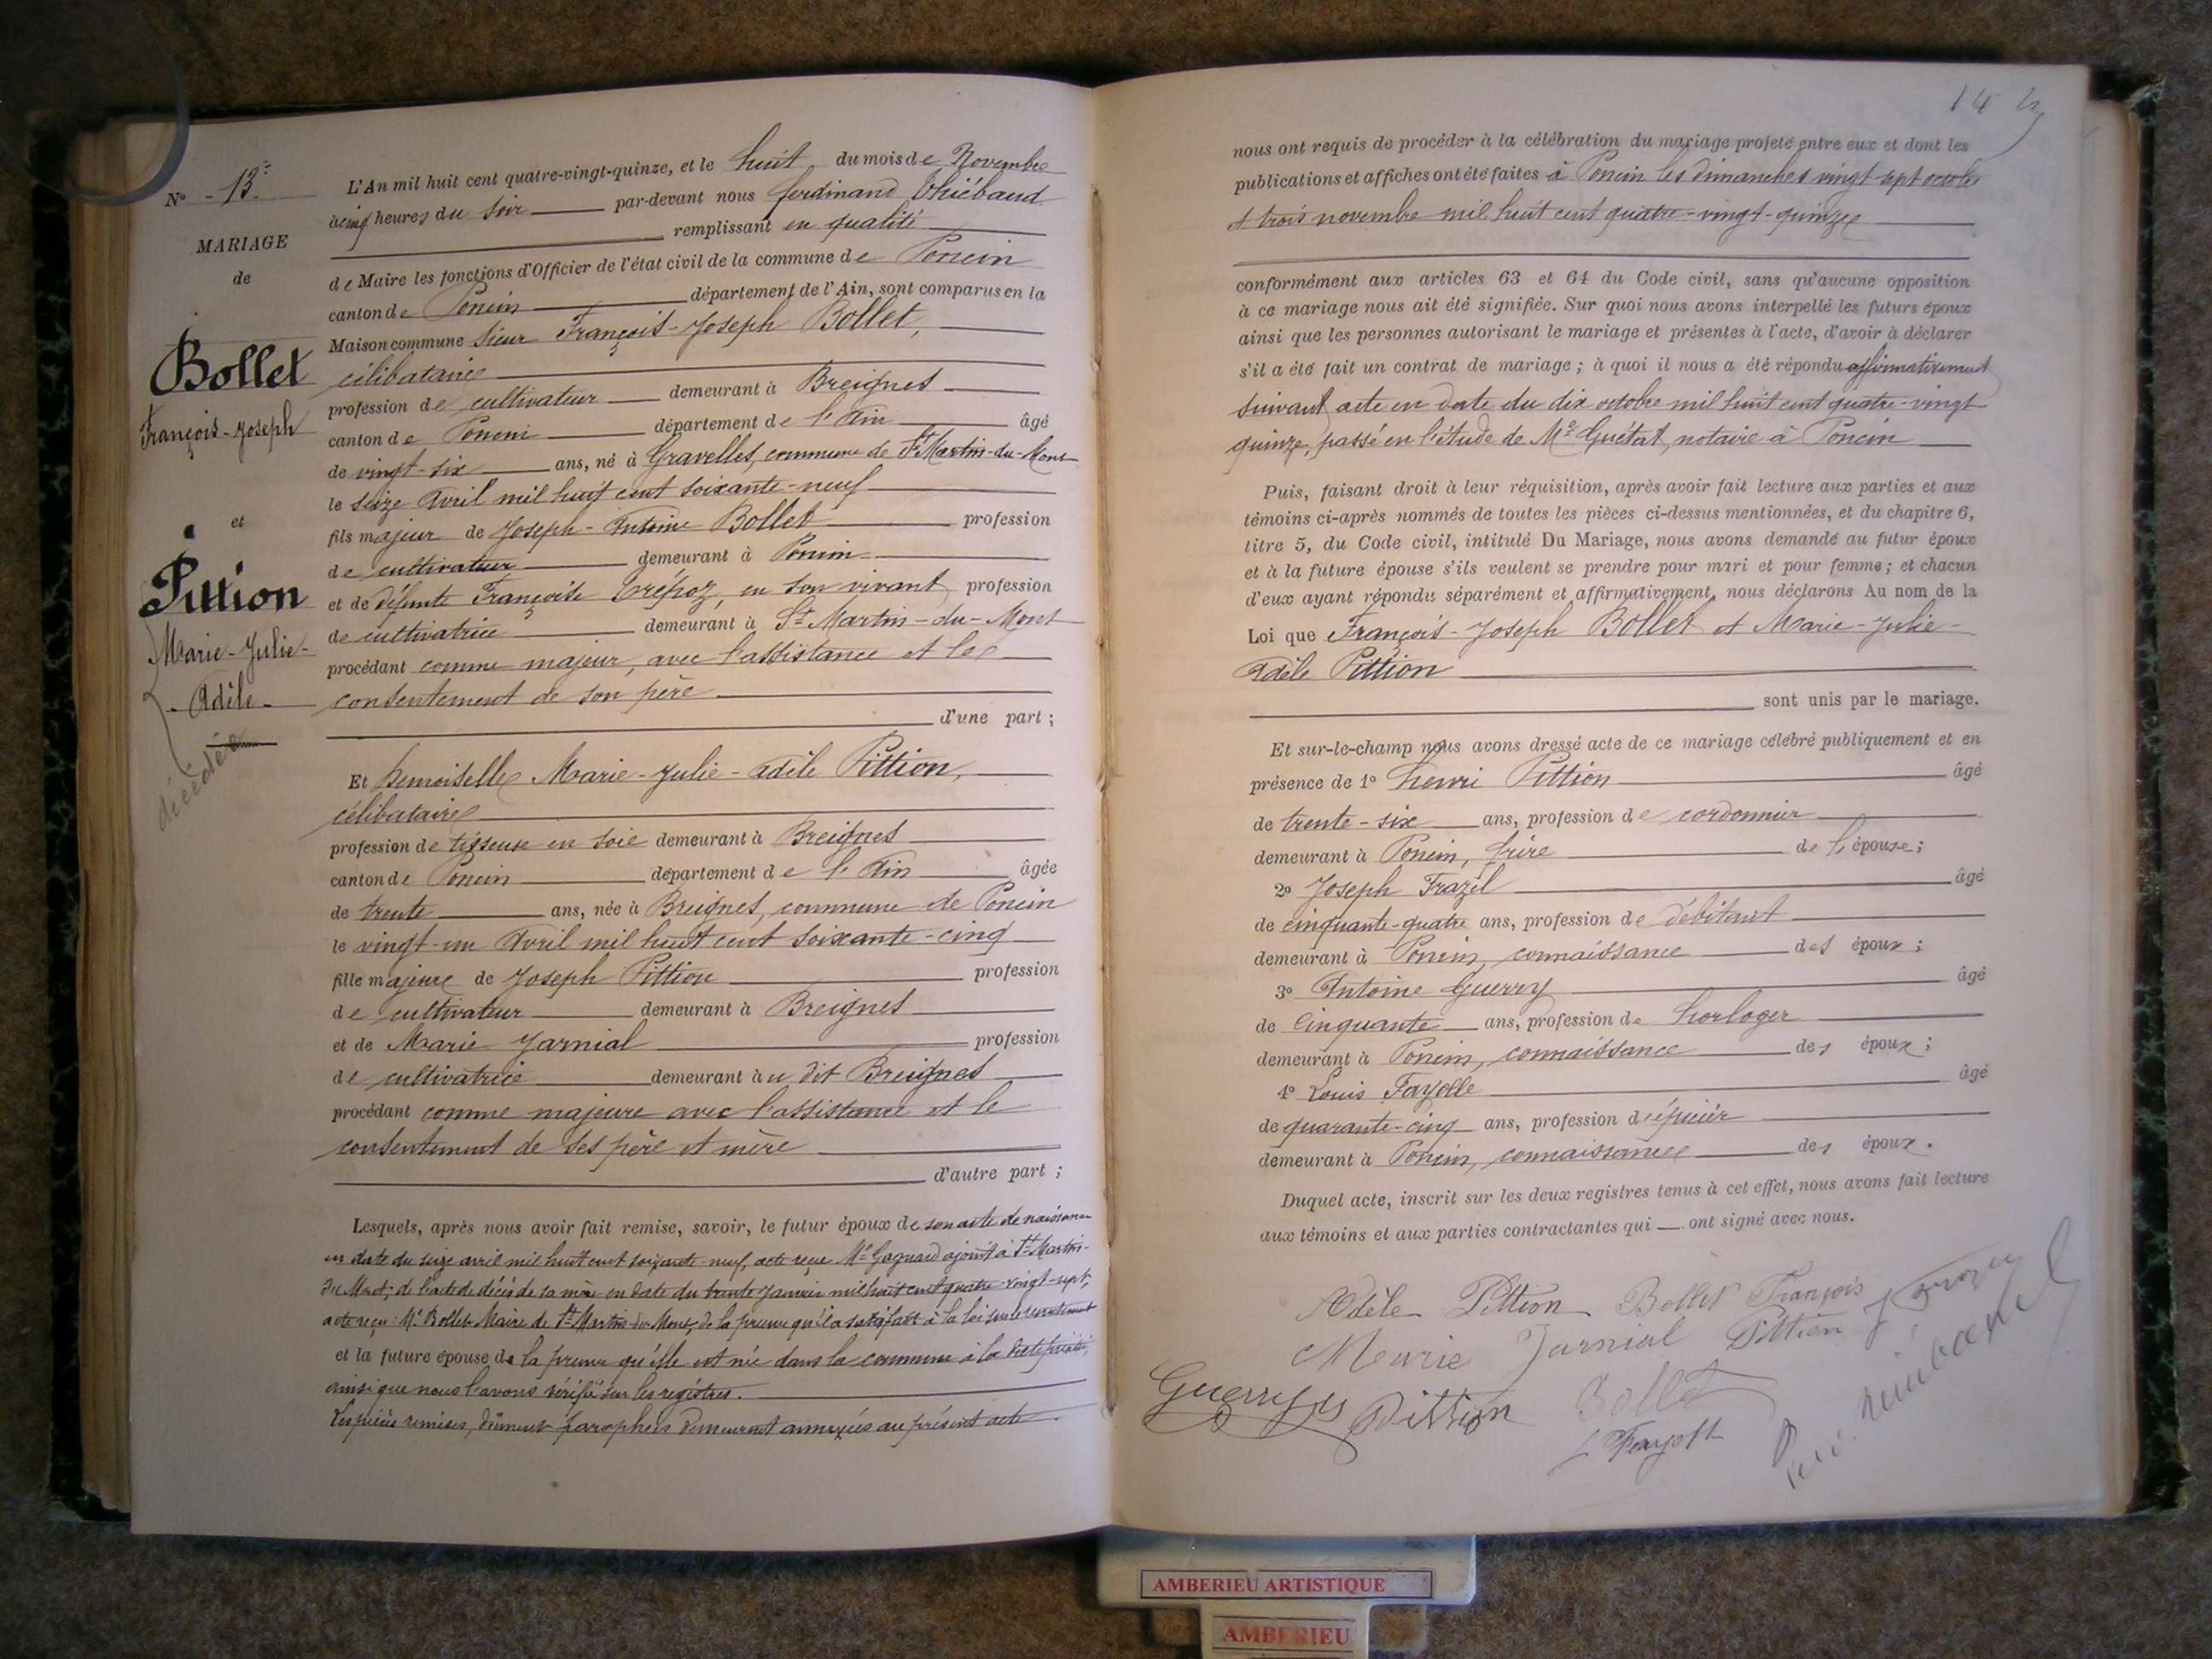 N° - 13.
MARIAGE
de
Bollet
François-Joseph
et
Pittion
Marie-Julie-
- Adèle -
décédée
L'An mil huit cent quatre-vingt-quinze, et le huit du mois de Novembre
à cinq heures du soir par-devant nous ferdinand Thiébaud
remplissant en qualité
de Maire les fonctions d'Officier de l'état civil de la commune de Poncin
canton de Poncin département de l'Ain, sont comparus en la
Maison commune sieur François-Joseph Bollet,
célibataire
profession de cultivateur demeurant à Breignes
canton de Poncin département de l'Ain âgé
de vingt-six ans, né à Gravelles, commune de St Martin-du-Mont
le seize Avril mil huit cent soixante-neuf
fils majeur de Joseph-Antoine Bollet profession
de cultivateur demeurant à Poncin
et de défunte Françoise Trépoz, en son vivant profession
de cultivatrice demeurant à St Martin-du-Mont
procédant comme majeur, avec l'assistance et le
consentement de son père
d'une part ;
Et Demoiselle Marie-Julie-Adèle Pittion,
célibataire
profession de tisseuse en soie demeurant à Breignes
canton de Poncin département de l'Ain âgée
de trente ans, née à Breignes, commune de Poncin
le vingt-un Avril mil huit cent soixante-cinq
fille majeure de Joseph Pittion profession
de cultivateur demeurant à Breignes
et de Marie Jarnial profession
de cultivatrice demeurant au dit Breignes
procédant comme majeure avec l'assistance et le
consentement de ses père et mère
d'autre part ;
Lesquels, après nous avoir fait remise, savoir, le futur époux de son acte de naissance
en date du seize avril mil huit cent soixante-neuf, acte reçu Mr Gagnard adjoint à St Martin-
du Mont; de l'acte de décès de sa mère en date du trente Janvier mil huit cent quatre-vingt-sept,
acte reçu Mr Bollet Maire de St Martin-du-Mont, de la preuve qu'il a satisfait à la loi sur le recrutement
et la future épouse de la preuve qu'elle est née dans la commune à la date précitée,
ainsi que nous l'avons vérifié sur les registres.
Les pièces remises, dûment paraphées demeurent annexées au présent acte.
14
nous ont requis de procéder à la célébration du mariage projeté entre eux et dont les
publications et affiches ont été faites à Poncin les dimanches vingt-sept octobre
et trois novembre mil huit cent quatre-vingt-quinze
conformément aux articles 63 et 64 du Code civil, sans qu'aucune opposition
à ce mariage nous ait été signifiée. Sur quoi nous avons interpellé les futurs époux
ainsi que les personnes autorisant le mariage et présentes à l'acte, d'avoir à déclarer
s'il a été fait un contrat de mariage ; à quoi il nous a été répondu affirmativement
suivant acte en date du dix octobre mil huit cent quatre-vingt
quinze, passé en l'étude de Me Guétat, notaire à Poncin
Puis, faisant droit à leur réquisition, après avoir fait lecture aux parties et aux
témoins ci-après nommés de toutes les pièces ci-dessus mentionnées, et du chapitre 6,
titre 5, du Code civil, intitulé Du Mariage, nous avons demandé au futur époux
et à la future épouse s'ils veulent se prendre pour mari et pour femme ; et chacun
d'eux ayant répondu séparément et affirmativement, nous déclarons Au nom de la
Loi que François-Joseph Bollet et Marie-Julie-
Adèle Pittion
sont unis par le mariage.
Et sur-le-champ nous avons dressé acte de ce mariage célébré publiquement et en
présence de 1° henri Pittion âgé
de trente-six ans, profession de cordonnier
demeurant à Poncin, frère de l'épouse ;
2° Joseph Frazil âgé
de cinquante-quatre ans, profession de débitant
demeurant à Poncin, connaissance des époux ;
3° Antoine Guerry âgé
de Cinquante ans, profession de horloger
demeurant à Poncin, connaissance des époux ;
4° Louis Fayolle âgé
de quarante-cinq ans, profession d'épicier
demeurant à Poncin, connaissance des époux.
Duquel acte, inscrit sur les deux registres tenus à cet effet, nous avons fait lecture
aux témoins et aux parties contractantes qui ont signé avec nous.
Adèle Pittion Bollet François
Marie Jarnial Pittion J
Guerry Pittion Bollet
L Fayolle
AMBERIEU ARTISTIQUE
AMBERIEU